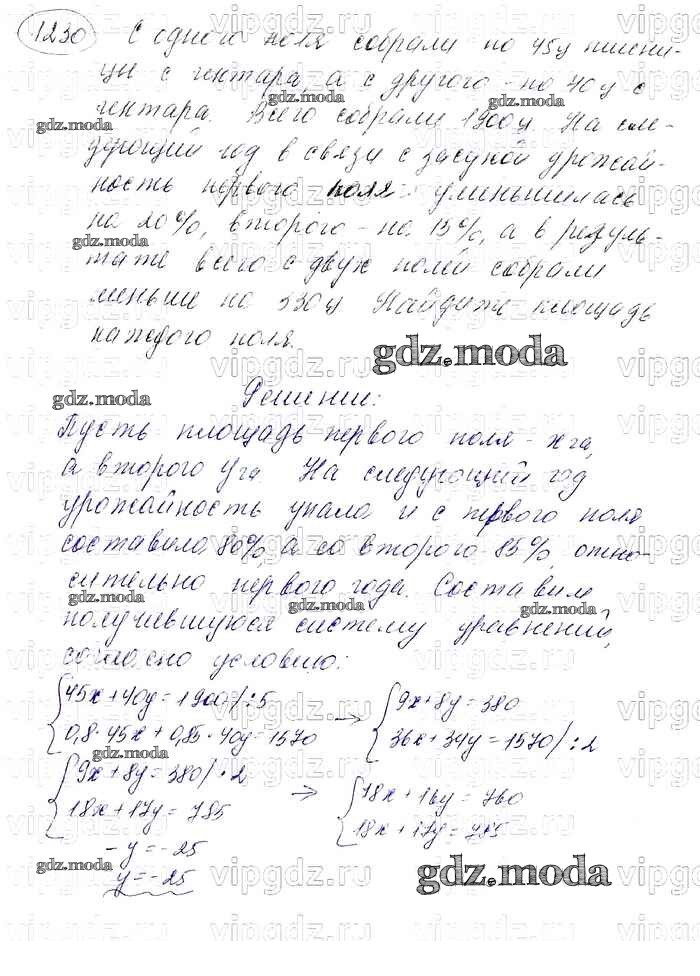 1230 С одного поля собрали по 45ц пшени-
цы с гектара, а с другого - по 40 ц с
гектара. Всего собрали 1900ц. На сле-
дующий год в связи с засухой урожай-
ность первого поля уменьшилась
на 20%, второго - на 15%, а в резуль-
тате всего с двух полей собрали
меньше на 330ц. Найдите площадь
каждого поля.
Решение:
Пусть площадь первого поля - x га,
а второго y га. На следующий год
урожайность упала и с первого поля
составила 80%, а со второго 85%, отно-
сительно первого года. Составим
получившуюся систему уравнений,
согласно условию:
45x+40y=1900/:5 → 9x+8y=380
0,8·45x+0,85·40y=1570 36x+34y=1570/:2
9x+8y=380/·2 → 18x+16y=760
18x+17y=785 18x+17y=785
-y=-25
y=-25
gdz.moda
vipgdz.ru